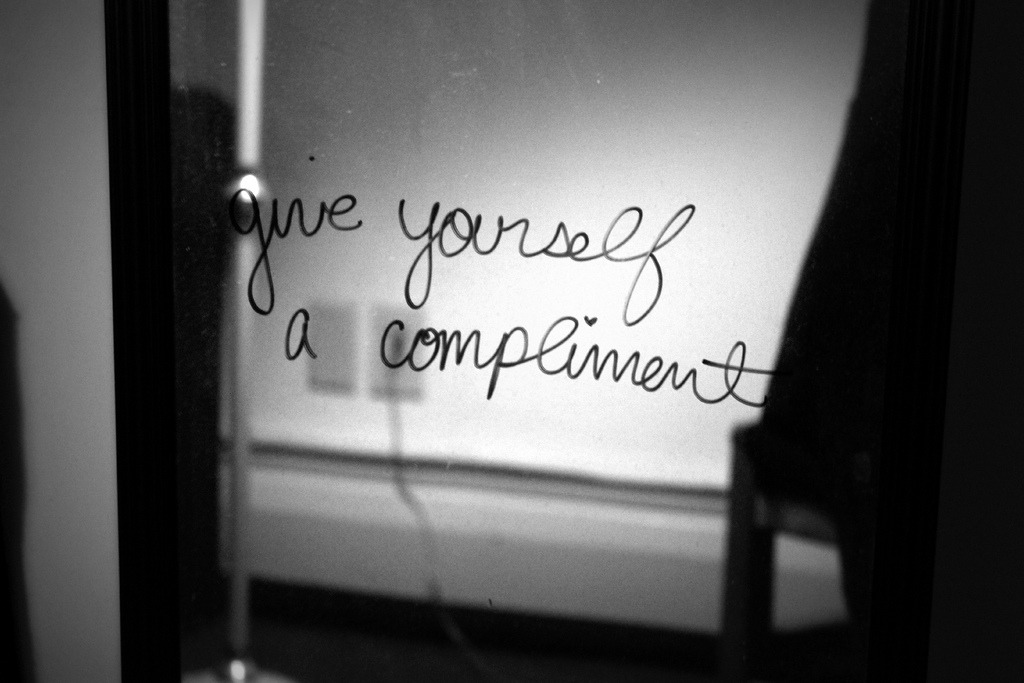 give yourself
a compliment